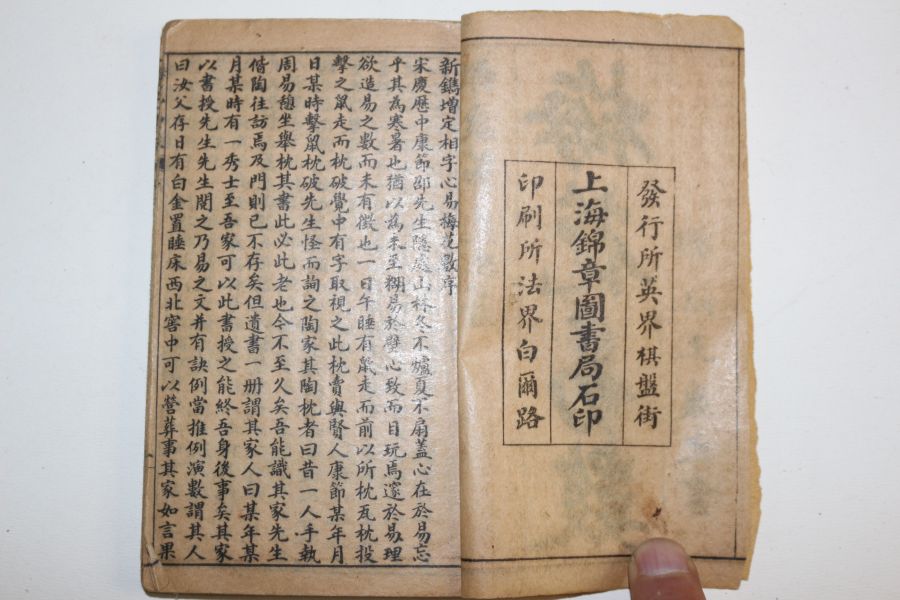 發行所英界棋盤街
上海錦章圖書局石印
印刷所法界白爾路
新鐫增定相字心易梅花數序
宋慶歷中康節邵先生隱處山林冬不爐夏不扇蓋心在於易忘
乎其為寒暑也猶以為未至糊易於壁心致而目玩焉邃於易理
欲造易之數而未有徵也一日午睡有鼠走而前以所枕瓦枕投
擊之鼠走而枕破覺中有字取視之此枕賣與賢人康節某年月
日某時擊鼠枕破先生怪而詢之陶家其陶枕者曰昔一人手執
周易憩坐舉枕其書此必此老也今不至久矣吾能識其家先生
偕陶往訪焉及門則已不存矣但遺書一册謂其家人曰某年某
月某時有一秀士至吾家可以此書授之能終吾身後事矣其家
以書授先生先生閱之乃易之文并有訣例當推例演數謂其人
曰汝父存日有白金置睡床西北窖中可以營葬事其家如言果